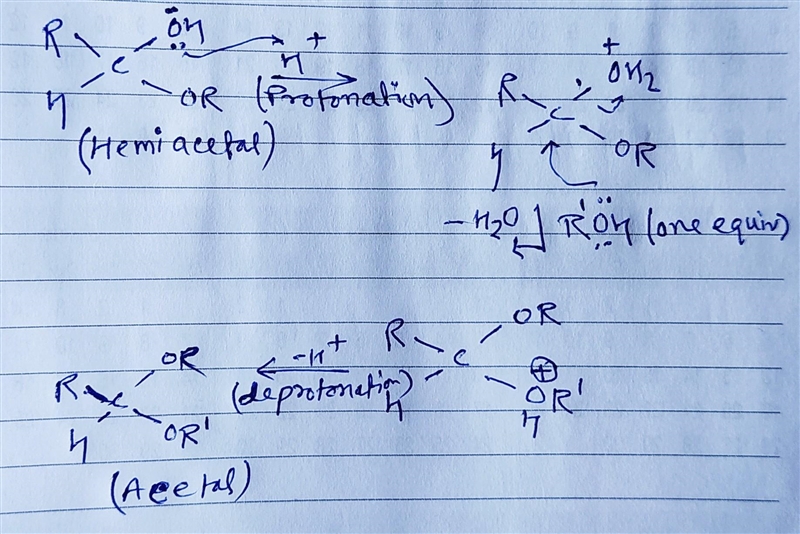 R ÖH H⁺
C
H OR (Protonation)
(Hemiacetal)
+
OH₂
R
C
H OR
-H₂O R'ÖH (one equiv)
R OR
C
H ⊕
OR'
H
-H⁺
(deprotonation)
R OR
C
H OR'
(Acetal)